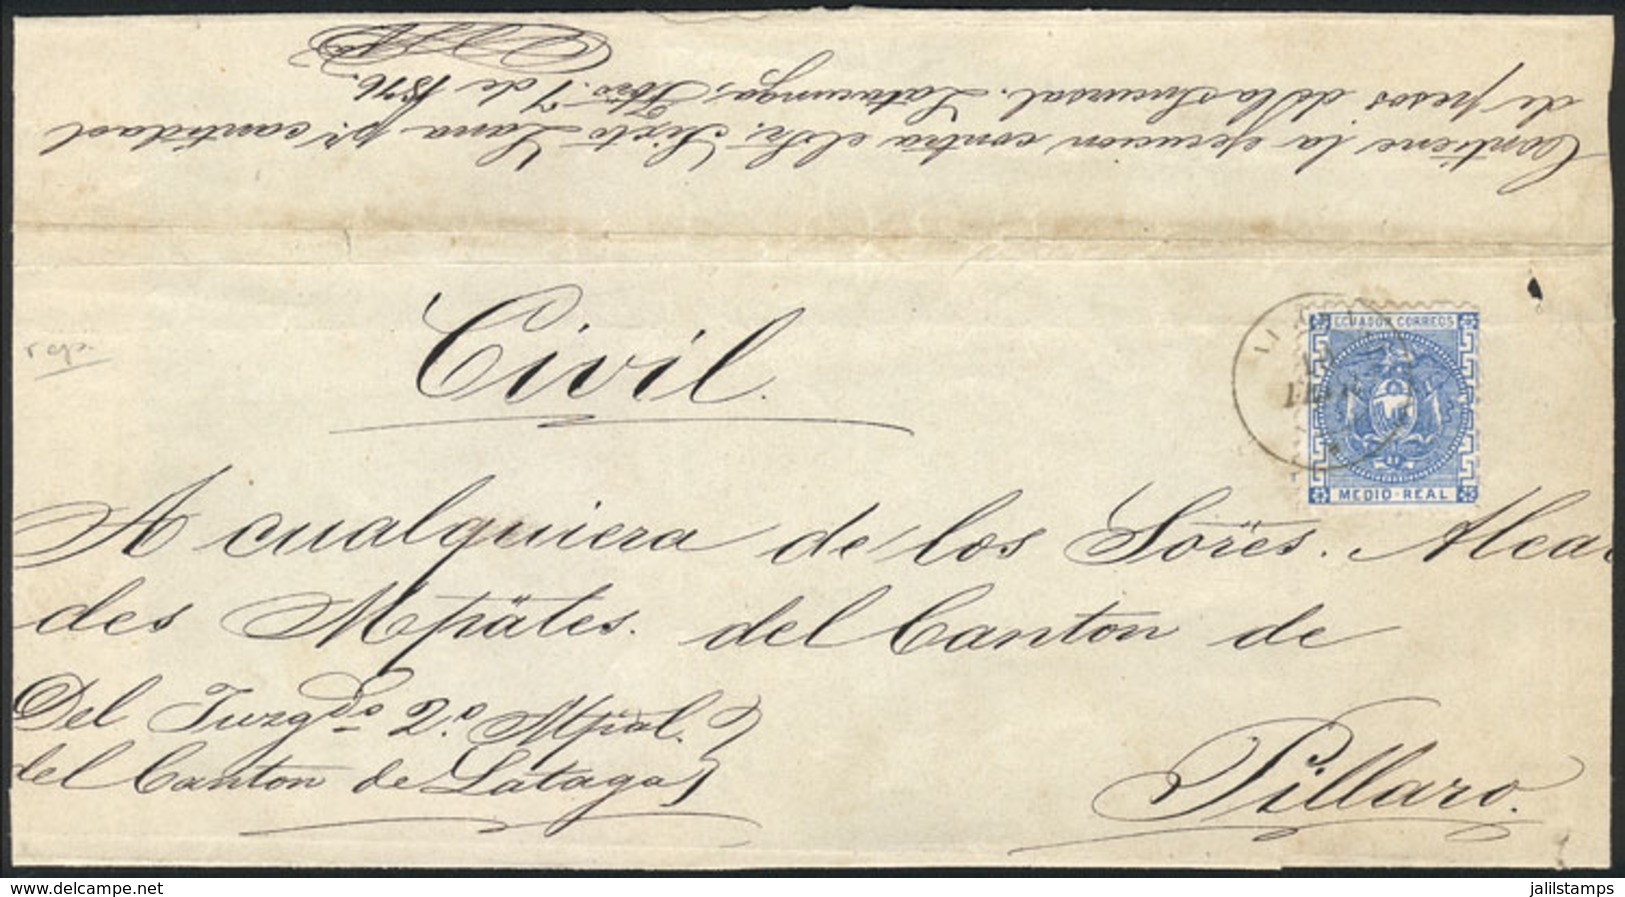 Contiene la ejecucion contra el Sr. Sixto Lana pr. cantidad
de pesos de la Sucursal. Latacunga, Fbro. 7 de 1876.
Civil.
ECUADOR CORREOS
MEDIO-REAL
A cualquiera de los Sores. Alcal
des Mpates. del Canton de
Pillaro.
Del Juzgdo. 2º. Mpial.
del Canton de Latagа
delcampe.net
jalilstamps